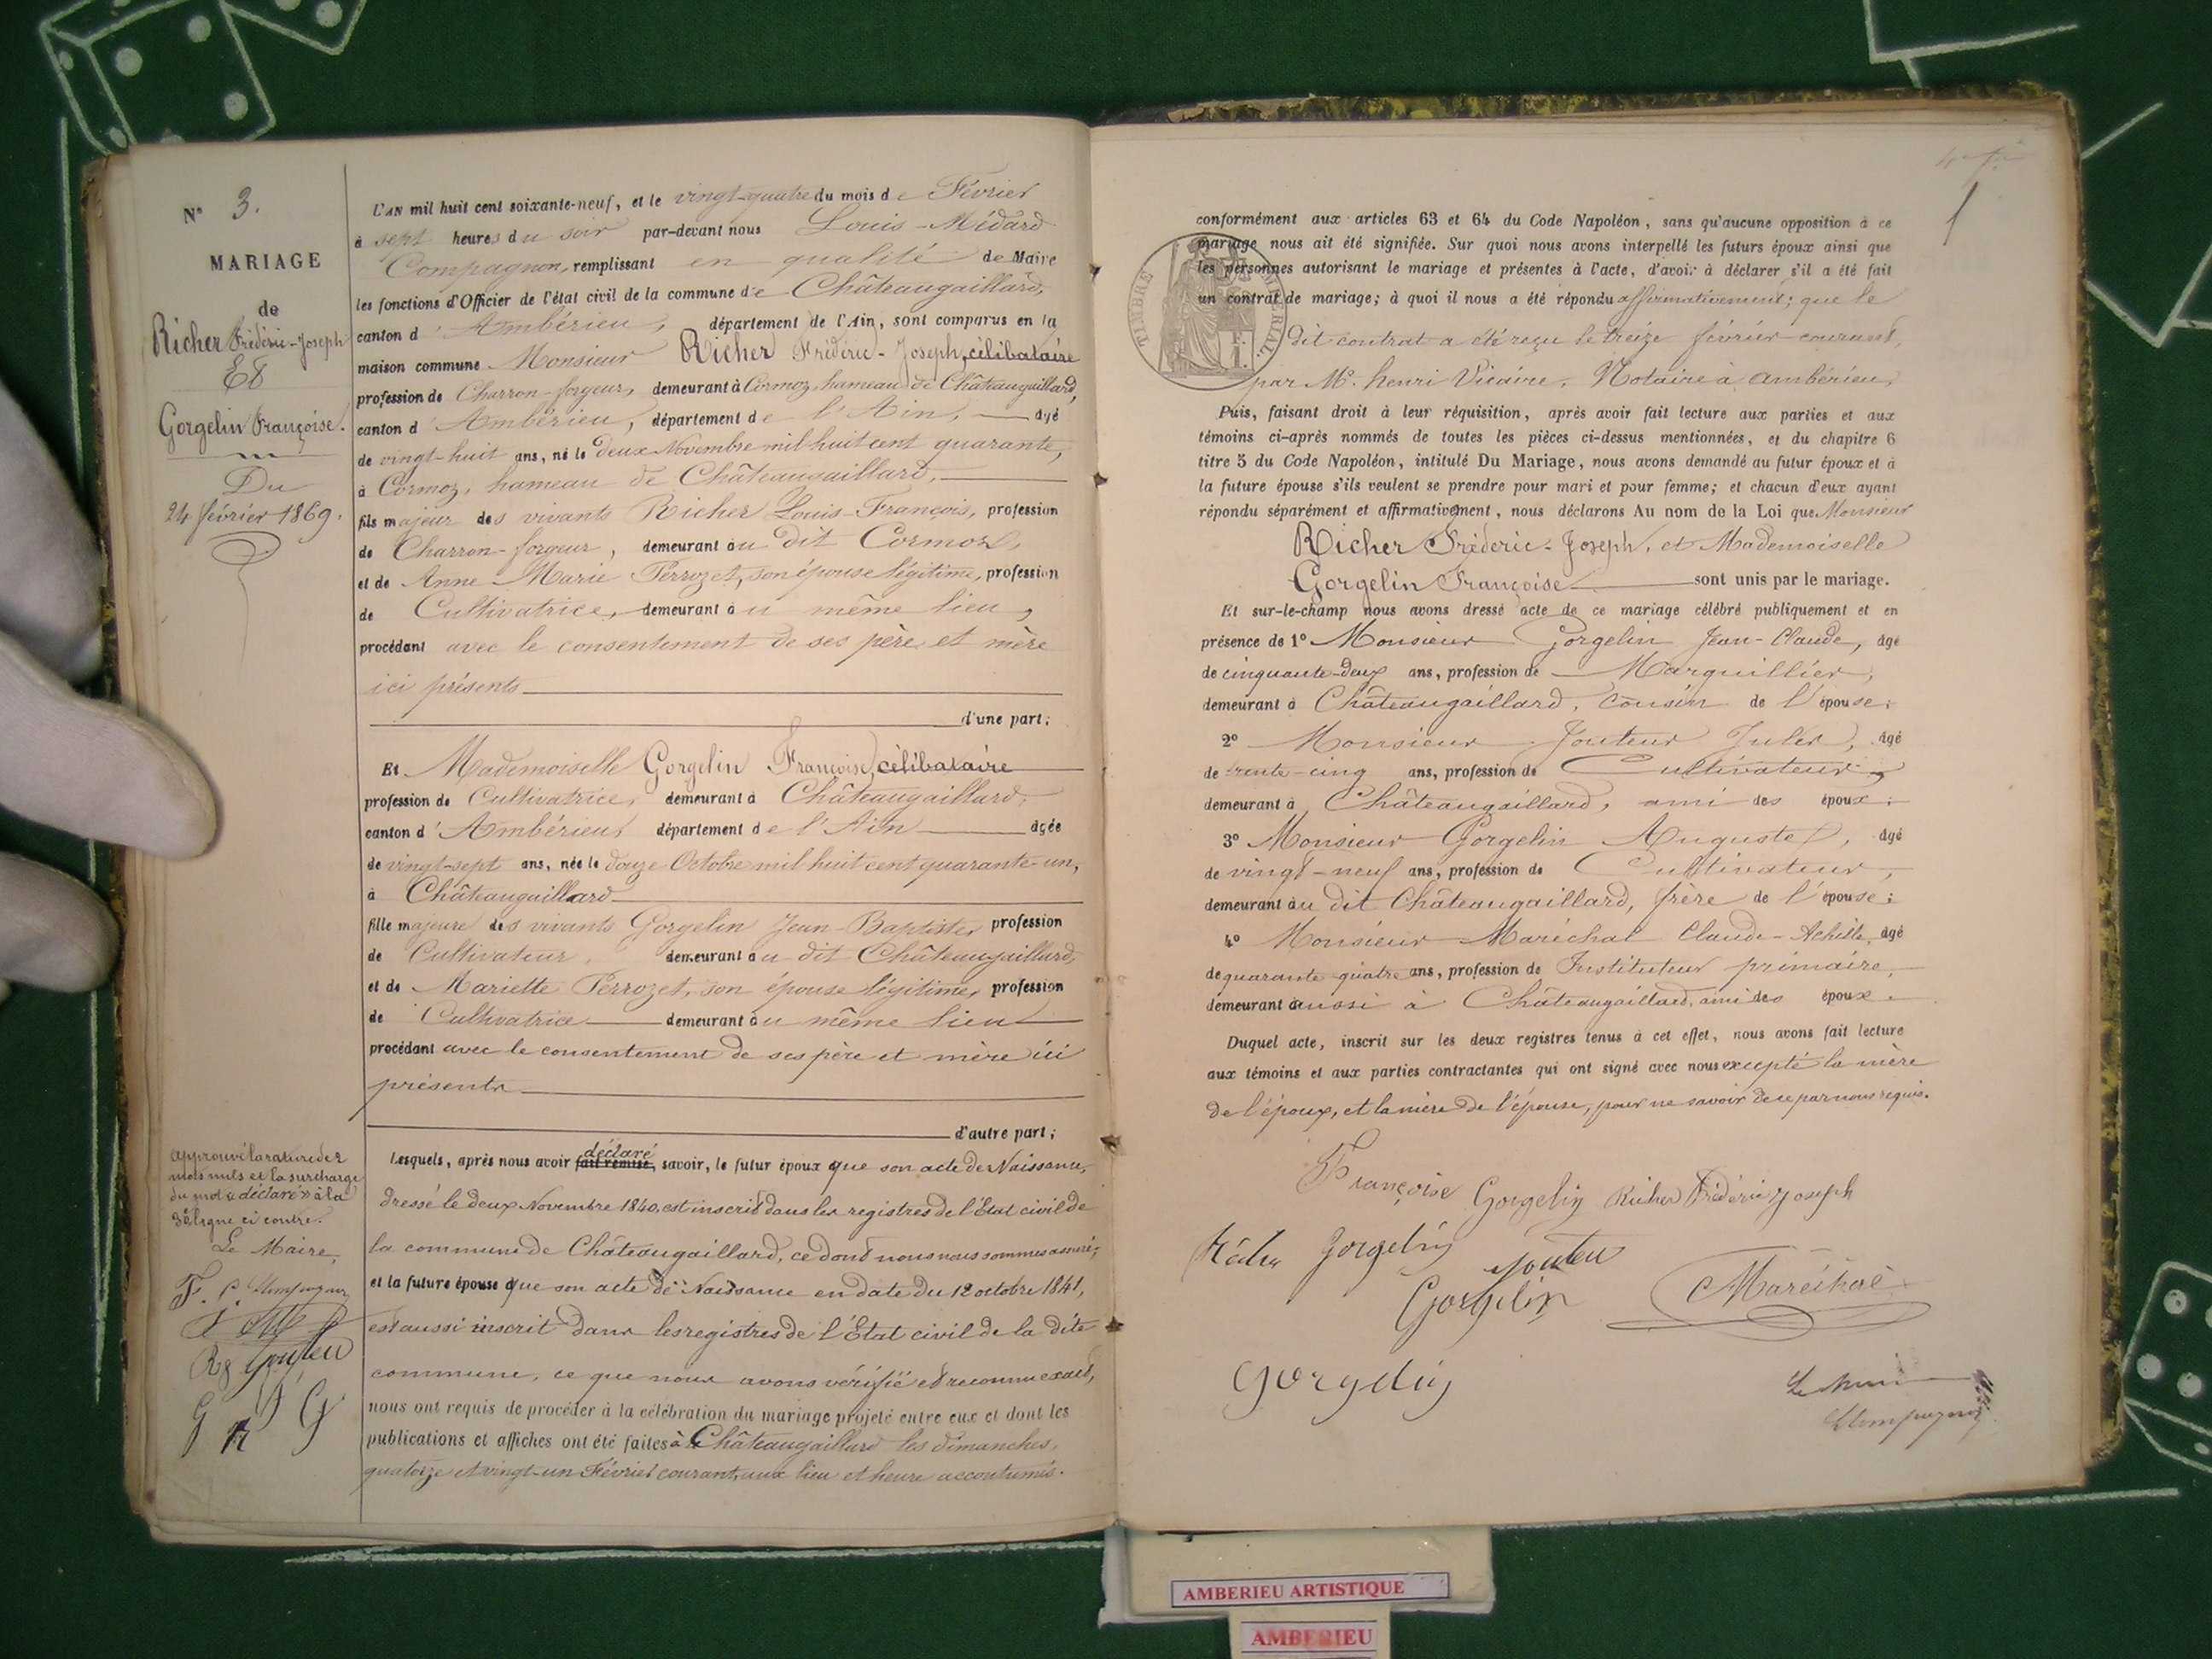 N° 3.
MARIAGE
de
Richer Frédéric-Joseph
Et
Gorgelin Françoise.
Du
24 février 1869.
L'AN mil huit cent soixante-neuf, et le vingt-quatre du mois de Février
à sept heures du soir par-devant nous Louis-Médard
Compagnon, remplissant en qualité de Maire
les fonctions d'Officier de l'état civil de la commune de Châteaugaillard,
canton d'Ambérieu, département de l'Ain, sont comparus en la
maison commune Monsieur Richer Frédéric-Joseph, célibataire
profession de Charron-forgeur, demeurant à Cormoz, hameau de Châteaugaillard,
canton d'Ambérieu, département de l'Ain, âgé
de vingt-huit ans, né le deux Novembre mil huit cent quarante,
à Cormoz, hameau de Châteaugaillard,
fils majeur des vivants Richer Louis-François, profession
de Charron-forgeur, demeurant au dit Cormoz,
et de Anne-Marie Perrozet, son épouse légitime, profession
de Cultivatrice, demeurant au même lieu,
procédant avec le consentement de ses père et mère
ici présents
d'une part;
Et Mademoiselle Gorgelin Françoise, célibataire
profession de Cultivatrice, demeurant à Châteaugaillard,
canton d'Ambérieu, département de l'Ain âgée
de vingt-sept ans, née le douze Octobre mil huit cent quarante-un,
à Châteaugaillard
fille majeure des vivants Gorgelin Jean-Baptiste, profession
de Cultivateur, demeurant au dit Châteaugaillard,
et de Mariette Perrozet, son épouse légitime, profession
de Cultivatrice demeurant au même lieu
procédant avec le consentement de ses père et mère ici
présents
d'autre part;
déclaré
Lesquels, après nous avoir fait remise, savoir, le futur époux que son acte de Naissance,
dressé le deux Novembre 1840, est inscrit dans les registres de l'État civil de
la commune de Châteaugaillard, ce dont nous nous sommes assuré;
et la future épouse que son acte de Naissance en date du 12 octobre 1841,
est aussi inscrit dans les registres de l'État civil de la dite
commune, ce que nous avons vérifié et reconnu exact,
nous ont requis de procéder à la célébration du mariage projeté entre eux et dont les
publications et affiches ont été faites à Châteaugaillard les dimanches,
quatorze et vingt-un Février courant, aux lieu et heure accoutumés.
approuvé la rature de 2
mots nuls et la surcharge
du mot « déclaré » à la
3e ligne ci contre.
Le Maire,
conformément aux articles 63 et 64 du Code Napoléon, sans qu'aucune opposition à ce
mariage nous ait été signifiée. Sur quoi nous avons interpellé les futurs époux ainsi que
les personnes autorisant le mariage et présentes à l'acte, d'avoir à déclarer s'il a été fait
un contrat de mariage; à quoi il nous a été répondu affirmativement; que le
dit contrat a été reçu le treize février courant,
par Me. henri Vicaire, Notaire à ambérieu,
TIMBRE IMPÉRIAL
Puis, faisant droit à leur réquisition, après avoir fait lecture aux parties et aux
témoins ci-après nommés de toutes les pièces ci-dessus mentionnées, et du chapitre 6
titre 5 du Code Napoléon, intitulé Du Mariage, nous avons demandé au futur époux et à
la future épouse s'ils veulent se prendre pour mari et pour femme; et chacun d'eux ayant
répondu séparément et affirmativement, nous déclarons Au nom de la Loi que Monsieur
Richer Fréderic-Joseph, et Mademoiselle
Gorgelin Françoise sont unis par le mariage.
Et sur-le-champ nous avons dressé acte de ce mariage célébré publiquement et en
présence de 1° Monsieur Gorgelin Jean-Claude, âgé
de cinquante-deux ans, profession de Marguillier,
demeurant à Châteaugaillard, cousin de l'épouse;
2° Monsieur Jouteur Jules, âgé
de trente-cinq ans, profession de Cultivateur,
demeurant à Châteaugaillard, ami des époux;
3° Monsieur Gorgelin Auguste, âgé
de vingt-neuf ans, profession de Cultivateur,
demeurant au dit Châteaugaillard, frère de l'épouse;
4° Monsieur Maréchal Claude-Achille, âgé
de quarante-quatre ans, profession de Instituteur primaire,
demeurant aussi à Châteaugaillard, ami des époux.
Duquel acte, inscrit sur les deux registres tenus à cet effet, nous avons fait lecture
aux témoins et aux parties contractantes qui ont signé avec nous excepté la mère
de l'époux, et la mère de l'épouse, pour ne savoir de ce par nous requis.
Françoise Gorgelin Richer Frédéric Joseph
Gorgelin Jouteu
Gorgelin Maréchal
Gorgelin
Le Maire
Compagnon
AMBERIEU ARTISTIQUE
AMBERIEU